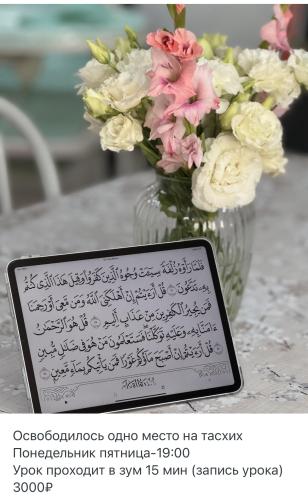 فَلَمَّا رَأَوْهُ زُلْفَةً سِيٓـَٔتْ وُجُوهُ ٱلَّذِينَ كَفَرُوا۟ وَقِيلَ هَـٰذَا ٱلَّذِى كُنتُم
بِهِۦ تَدَّعُونَ ٢٧ قُلْ أَرَءَيْتُمْ إِنْ أَهْلَكَنِىَ ٱللَّهُ وَمَن مَّعِىَ أَوْ رَحِمَنَا
فَمَن يُجِيرُ ٱلْكَـٰفِرِينَ مِنْ عَذَابٍ أَلِيمٍ ٢٨ قُلْ هُوَ ٱلرَّحْمَـٰنُ
ءَامَنَّا بِهِۦ وَعَلَيْهِ تَوَكَّلْنَا فَسَتَعْلَمُونَ مَنْ هُوَ فِى ضَلَـٰلٍ مُّبِينٍ
٢٩ قُلْ أَرَءَيْتُمْ إِنْ أَصْبَحَ مَآؤُكُمْ غَوْرًا فَمَن يَأْتِيكُم بِمَآءٍ مَّعِينٍ
Освободилось одно место на тасхих
Понедельник пятница-19:00
Урок проходит в зум 15 мин (запись урока)
3000₽